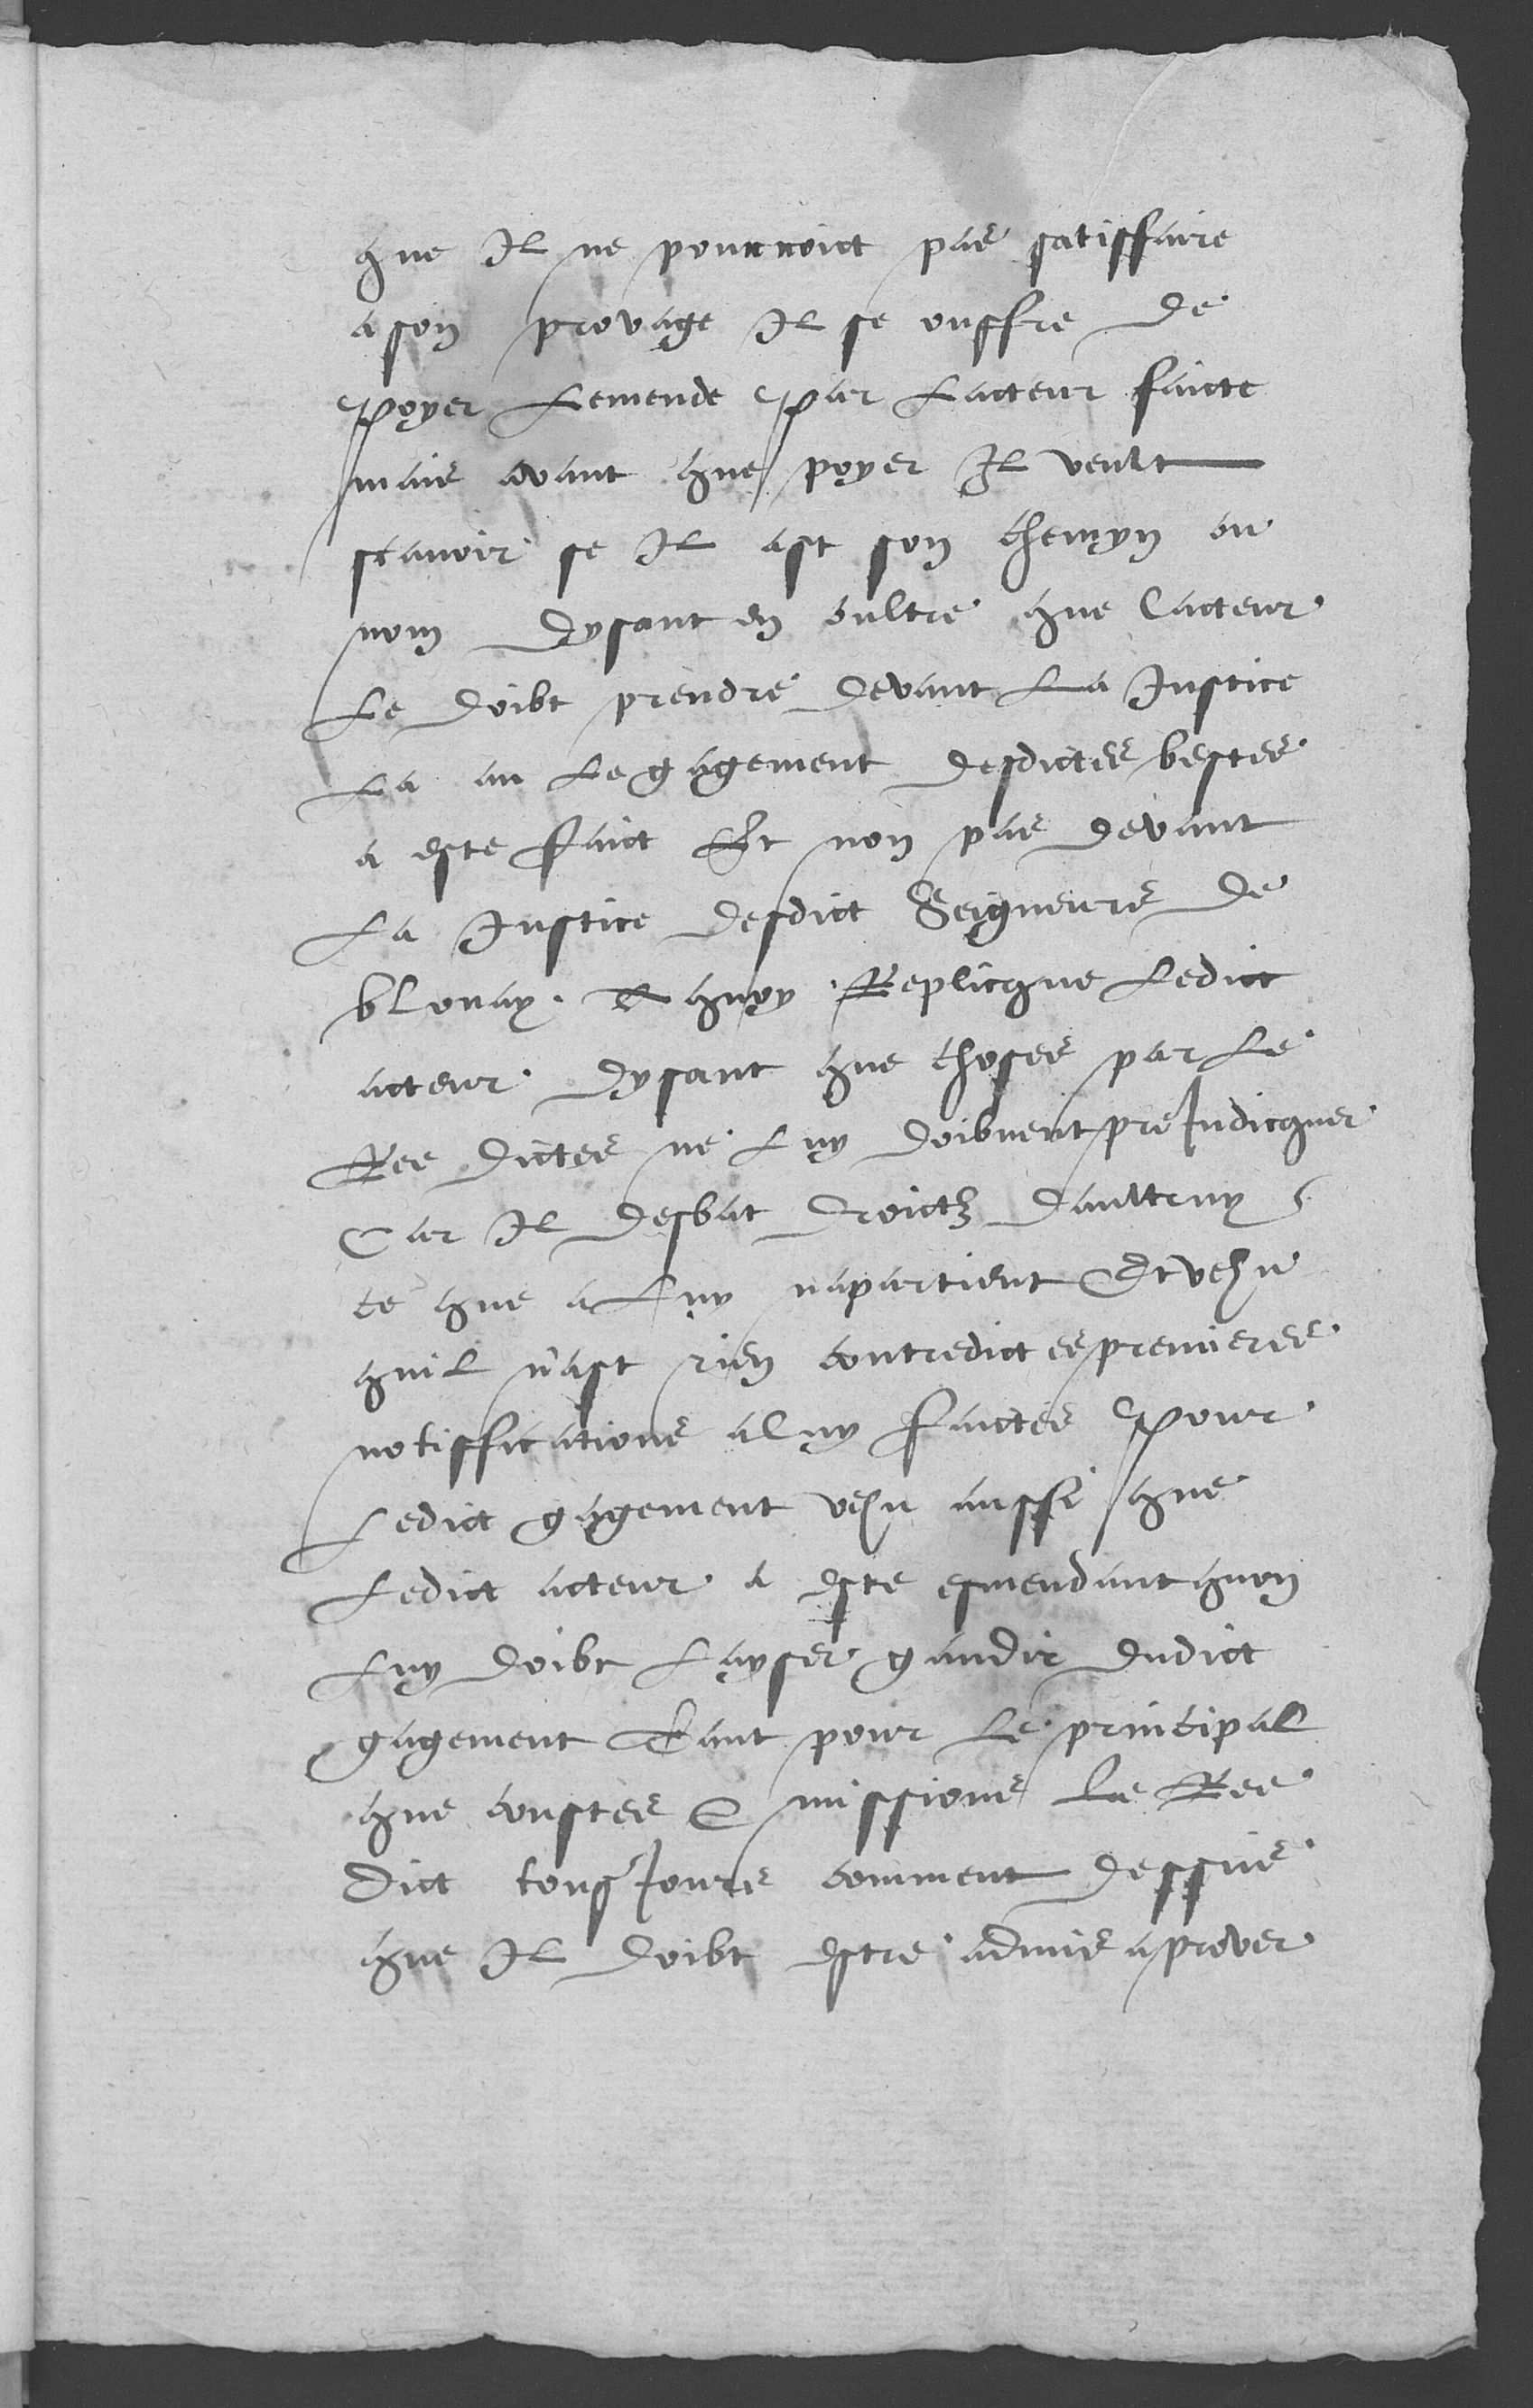 que Il ne pourroict pas satisffaire
a son provage Il se ouffre de
Poyer Lemende Par Lacteur faicte
mais avant que poyer Il veult
scavoir se Il ast son chemyn ou
nom dysant en oultre que Lacteur
Le doibt prendre devant La Justice
La au Le gagement desdictes bestes
a este faict Et non pas devant
La Justice desdict Seigneurs de
blonay. A quoy Replicque Ledict
acteur dysant que choses par Le
Ree dictes ne Luy doibvent preJudicquer
Car Il desbat droictz daultruy
ce que a Luy napartient Et veheu
quil nast rien contredict es premieres
notisffications a luy faictes Pour
Ledict gagement veheu aussi que
Ledict acteur a este esmendant quon
Luy doibt Laysser gaudir dudict
gagement Tant pour Le principal
que coustes & missions Le Ree
dict tousJours comment dessus
que Il doibt estre admis a prover